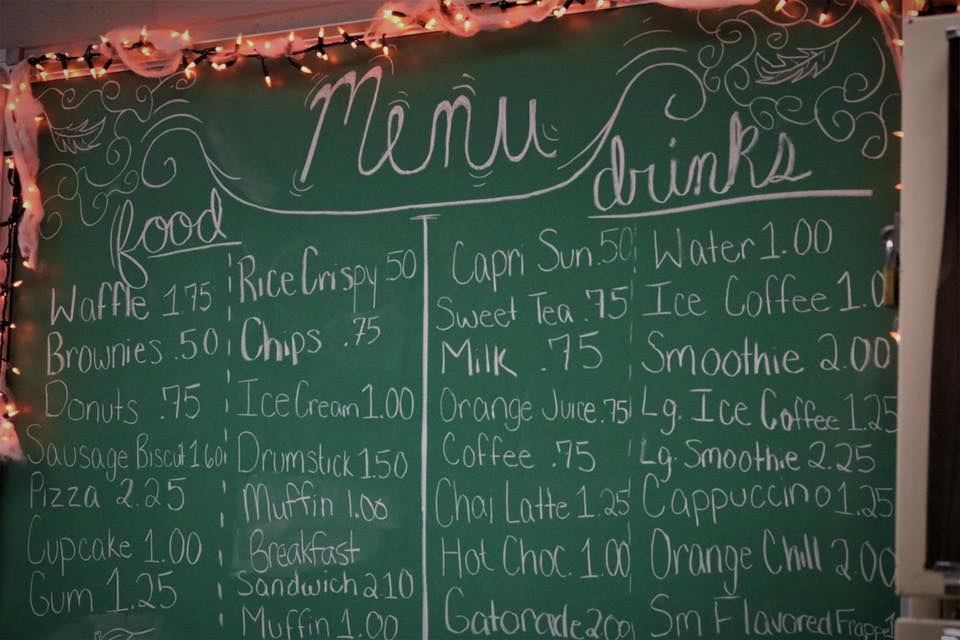 Menu
food
Waffle 1.75
Brownies .50
Donuts .75
Sausage Biscut 1.60
Pizza 2.25
Cupcake 1.00
Gum 1.25
Rice Crispy .50
Chips .75
Ice Cream 1.00
Drumstick 1.50
Muffin 1.00
Breakfast
Sandwich 2.10
Muffin 1.00
drinks
Capri Sun .50
Sweet Tea .75
Milk .75
Orange Juice .75
Coffee .75
Chai Latte 1.25
Hot Choc. 1.00
Gatorade 2.00
Water 1.00
Ice Coffee 1.0
Smoothie 2.00
Lg. Ice Coffee 1.25
Lg. Smoothie 2.25
Cappuccino 1.25
Orange Chill 2.00
Sm Flavored